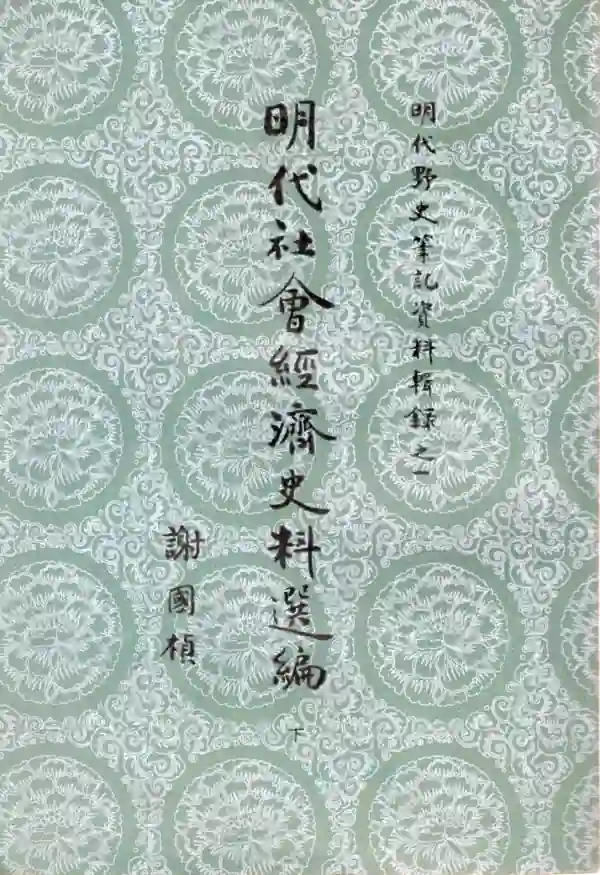 明代野史筆記資料輯録之一
明代社會經濟史料選編
下
謝國楨